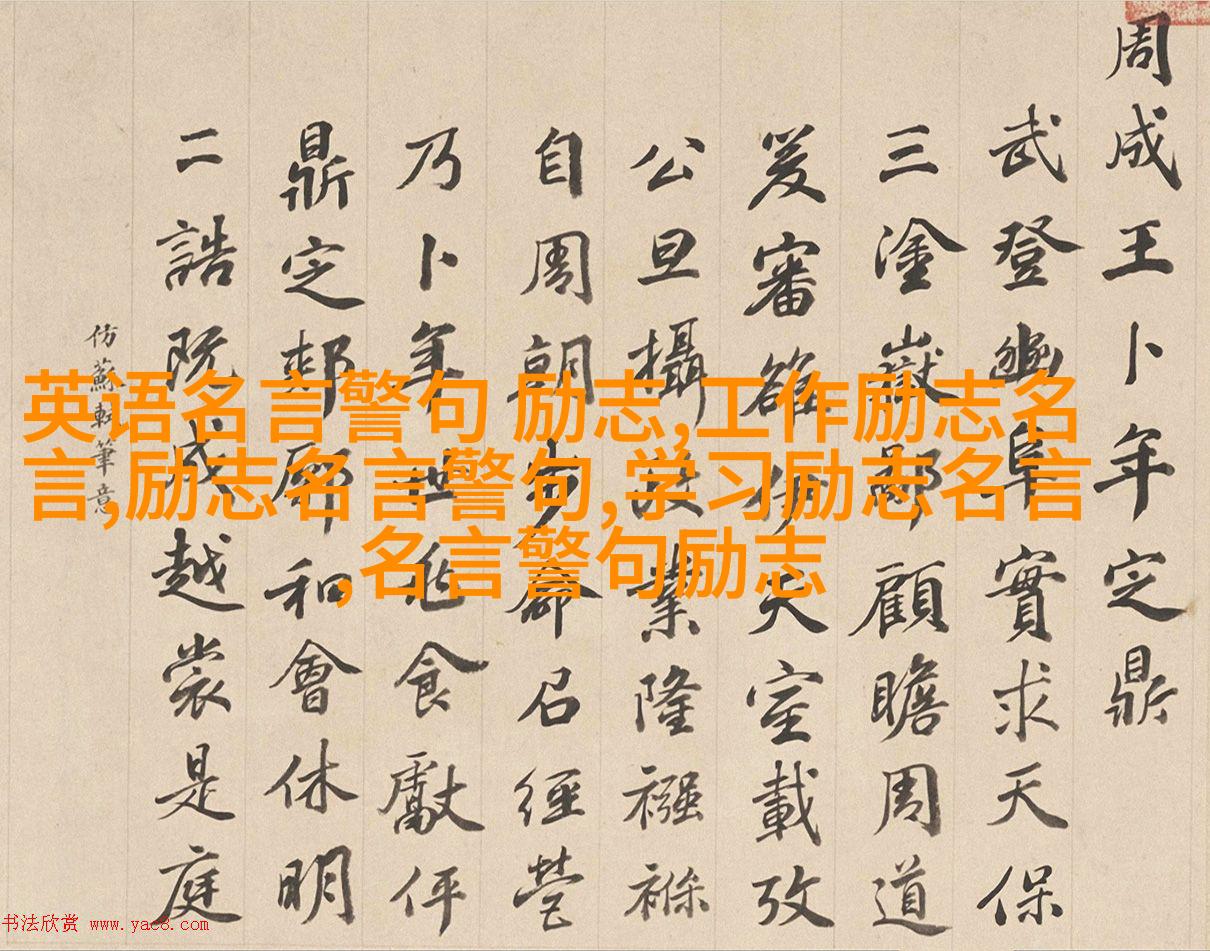 周成王卜年定鼎
武登豳阜實求天保
三塗嶽鄙顧瞻周道
爰審雒伊天室載攷
公旦攝政業隆襁褓
自周朝步命召經營
乃卜年世龜食獻伻
鼎定郟鄏和會休明
二誥既成越裳是庭
仿蘇軾筆意
英语名言警句 励志,工作励志名
言,励志名言警句,学习励志名言
,名言警句励志
书法欣赏 www.yac8.com